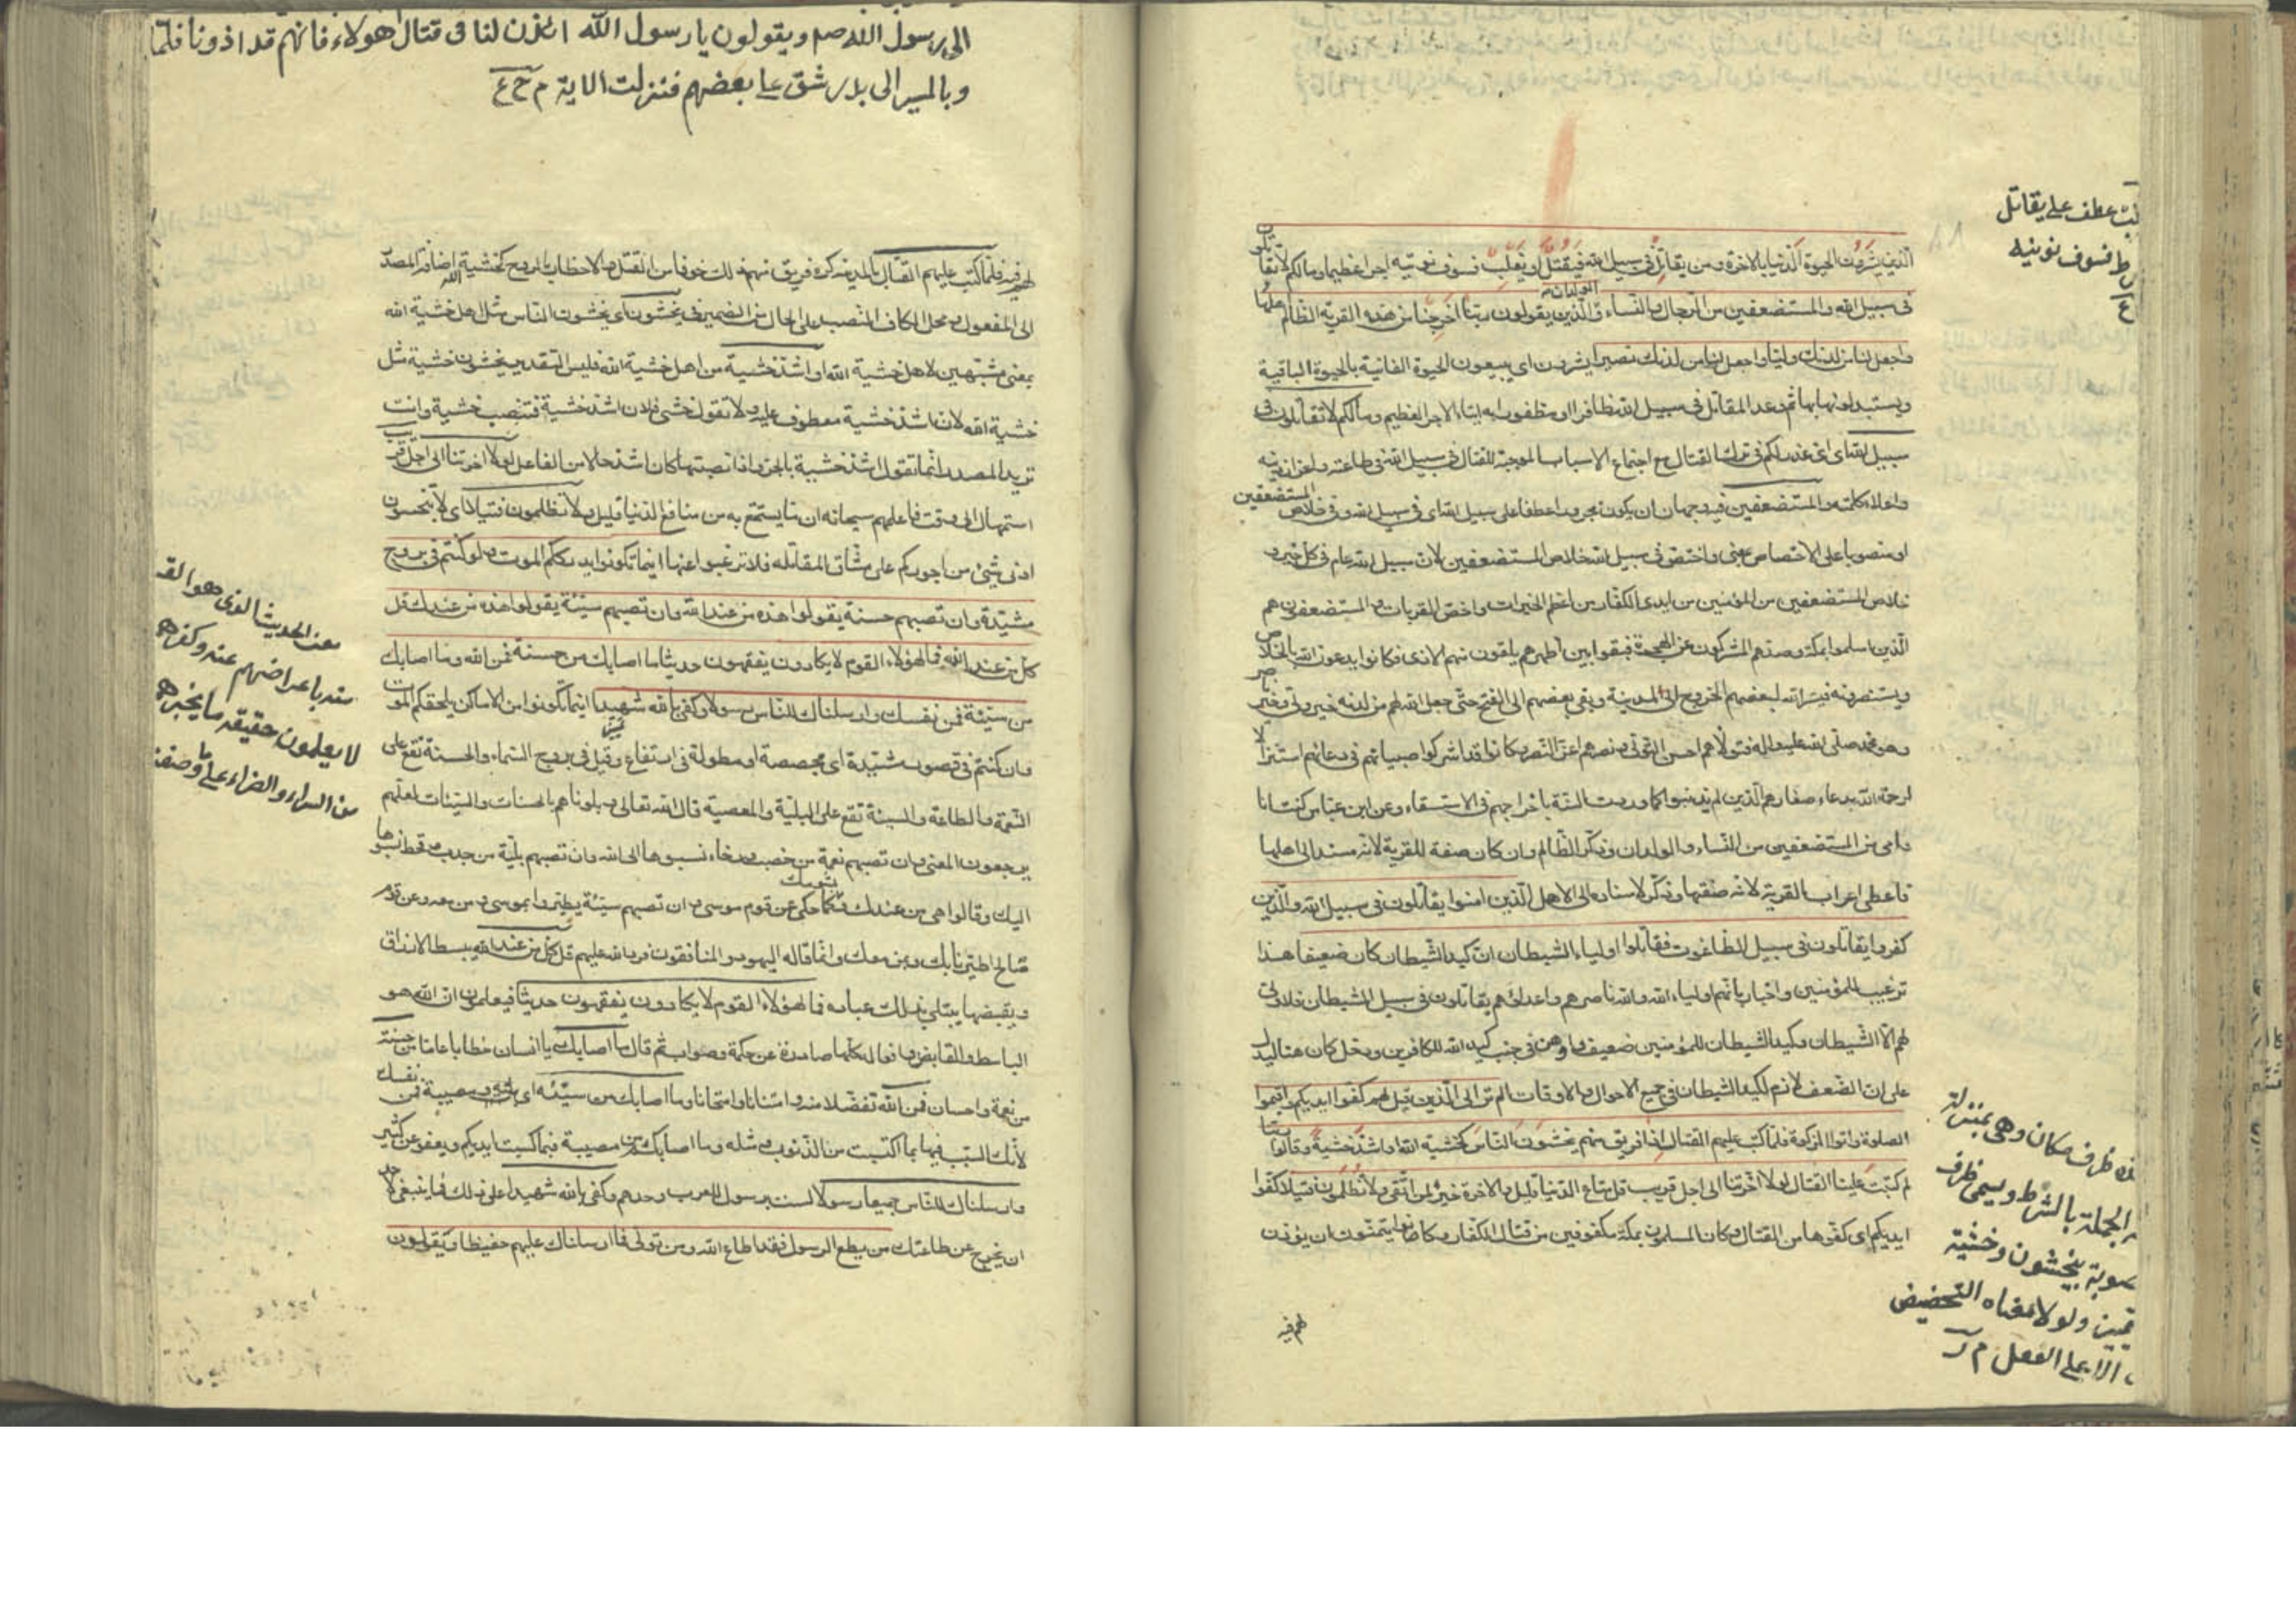 الذين يشرون الحيوة الدنيا بالاخرة ومن يقاتل فى سبيل الله فيقتل او يغلب فسوف نؤتيه اجرا عظيما وما لكم لا تقاتلون
فى سبيل الله والمستضعفين من الرجال والنساء والولدان الذين يقولون ربنا اخرجنا من هذه القرية الظالم اهلها
واجعل لنا من لدنك وليا واجعل لنا من لدنك نصيرا يشرون اى يبيعون الحيوة الفانية بالحيوة الباقية
ويستبدلونها بها ثم وعد المقاتل فى سبيل الله ظافرا او مظفورا به ايتاء الاجر العظيم وما لكم لا تقاتلون فى
سبيل الله اى اى عذر لكم فى ترك القتال مع اجتماع الاسباب الموجبة للقتال فى سبيل الله فى طاعته واعزاز دينه
واعلاء كلمته والمستضعفين فيه وجهان ان يكون مجرورا عطفا على سبيل الله اى فى سبيل الله وفى خلاص المستضعفين
او منصوبا على الاختصاص يعنى واختص فى سبيل الله خلاص المستضعفين لان سبيل الله عام فى كل خير و
خلاص المستضعفين من المؤمنين من ايدى الكفار من اعظم الخيرات واخص القربات والمستضعفون هم
الذين اسلموا بمكة وصدهم المشركون عن الهجرة فبقوا بين اظهرهم يلقون منهم الاذى فكانوا يدعون الله بالخلاص
ويستنصرونه فيسر الله لبعضهم الخروج الى المدينة وبقى بعضهم الى الفتح حتى جعل الله لهم من لدنه خير ولى وخير ناصر
وهو محمد صلى الله عليه واله فتولاهم احسن التولى ونصرهم اعز النصر وكانوا قد اشركوا صبيانهم فى دعائهم استنزالا
لرحمة الله بدعاء صغارهم الذين لم يذنبوا كما وردت السنة باخراجهم فى الاستسقاء وعن ابن عباس كنت انا
وامى من المستضعفين من النساء والولدان وذكر الظالم وان كان صفة للقرية لانه مسند الى اهلها
فاعطى اعراب القرية لانه صفتها وذكر لاسناده الى الاهل الذين امنوا يقاتلون فى سبيل الله والذين
كفروا يقاتلون فى سبيل الطاغوت فقاتلوا اولياء الشيطان ان كيد الشيطان كان ضعيفا هذا
ترغيب للمؤمنين واخبار بانهم اولياء الله والله ناصرهم واعداؤهم يقاتلون فى سبيل الشيطان فلا ولى
لهم الا الشيطان وكيد الشيطان للمؤمنين ضعيف واوهن فى جنب كيد الله للكافرين ودخل كان هنا ليدل
على ان الضعف لازم لكيد الشيطان فى جميع الاحوال والاوقات الم تر الى الذين قيل لهم كفوا ايديكم واقيموا
الصلوة واتوا الزكوة فلما كتب عليهم القتال اذا فريق منهم يخشون الناس كخشية الله او اشد خشية وقالوا ربنا
لم كتبت علينا القتال لولا اخرتنا الى اجل قريب قل متاع الدنيا قليل والاخرة خير لمن اتقى ولا تظلمون فتيلا كفوا
ايديكم اى كفوها من القتال وكان المسلمون بمكة مكفوفين من قتال الكفار وكانوا يتمنون ان يؤذن
لهم فيه
عطف على يقاتل
فسوف نؤتيه
ظرف مكان وهى بمنزلة
الجملة بالشرط ويسمى ظرف
بيخشون وخشية
تميز ولولا معناه التحضيض
الا على الفعل م ر
الى رسول الله صم ويقولون يا رسول الله ائذن لنا فى قتال هولاء فانهم قد اذونا فلما
وبالمسير الى بدر شق على بعضهم فنزلت الاية م ح ع
لهم فيه فلما كتب عليهم القتال بالمدينة كره فريق منهم ذلك خوفا من القتل والاخطار بالروح كخشية الله اضافة المصدر
الى المفعول ومحل الكاف النصب على الحال من الضمير فى يخشون اى يخشون الناس مثل اهل خشية الله
بمعنى مشبهين لاهل خشية الله او اشد خشية من اهل خشية الله فليس التقدير يخشون خشية مثل
خشية الله لان اشد خشية معطوف عليه ولا تقول خشى فلان اشد خشية فتنصب خشية وانت
تريد المصدر انما تقول اشد خشية بالجر واذا نصبتها كان اشد حالا من الفاعل لولا اخرتنا الى اجل قريب
استمهال الى وقت فاعلمهم سبحانه ان ما يستمتع به من منافع الدنيا قليل ولا تظلمون فتيلا اى لا تبخسون
ادنى شئ من اجوركم على مشاق المقاتلة فلا ترغبوا عنها اينما تكونوا يدرككم الموت ولو كنتم فى بروج
مشيدة وان تصبهم حسنة يقولوا هذه من عند الله وان تصبهم سيئة يقولوا هذه من عندك قل
كل من عند الله فما لهؤلاء القوم لا يكادون يفقهون حديثا ما اصابك من حسنة فمن الله وما اصابك
من سيئة فمن نفسك وارسلناك للناس رسولا وكفى بالله شهيدا اينما تكونوا من الاماكن يلحقكم الموت
وان كنتم فى قصور مشيدة اى مجصصة او مطولة فى ارتفاع وقيل فى بروج السماء والحسنة تقع على
النعمة والطاعة والسيئة تقع على البلية والمعصية قال الله تعالى وبلوناهم بالحسنات والسيئات لعلهم
يرجعون المعنى وان تصبهم نعمة من خصب ورخاء نسبوها الى الله وان تصبهم بلية من جدب وقحط نسبوها
اليك وقالوا هى من عندك بشومك كما حكى عن قوم موسى وان تصبهم سيئة يطيروا بموسى ومن معه وعن قوم
صالح اطيرنا بك وبمن معك وانما قاله اليهود والمنافقون فرد الله عليهم قل كل من عند الله يبسط الارزاق
ويقبضها يبتلى بذلك عباده فما لهؤلاء القوم لا يكادون يفقهون حديثا فيعلمون ان الله هو
الباسط والقابض وافعاله كلها صادرة عن حكمة وصواب ثم قال ما اصابك يا انسان خطابا عاما من حسنة
من نعمة واحسان فمن الله تفضلا منه وامتنانا وامتحانا وما اصابك من سيئة اى بلية ومصيبة فمن نفسك
لانك السبب فيها بما اكتسبت من الذنوب ومثله وما اصابكم من مصيبة فبما كسبت ايديكم ويعفو عن كثير
وارسلناك للناس جميعا رسولا لست برسول للعرب وحدهم وكفى بالله شهيدا على ذلك فما ينبغى لاحد
ان يخرج عن طاعتك من يطع الرسول فقد اطاع الله ومن تولى فما ارسلناك عليهم حفيظا ويقولون
الحديث الذى هو القر
باعراضهم عنه وكفرهم
لا يعلمون حقيقة ما يخبرهم
من السراء والضراء على ما وصفنا